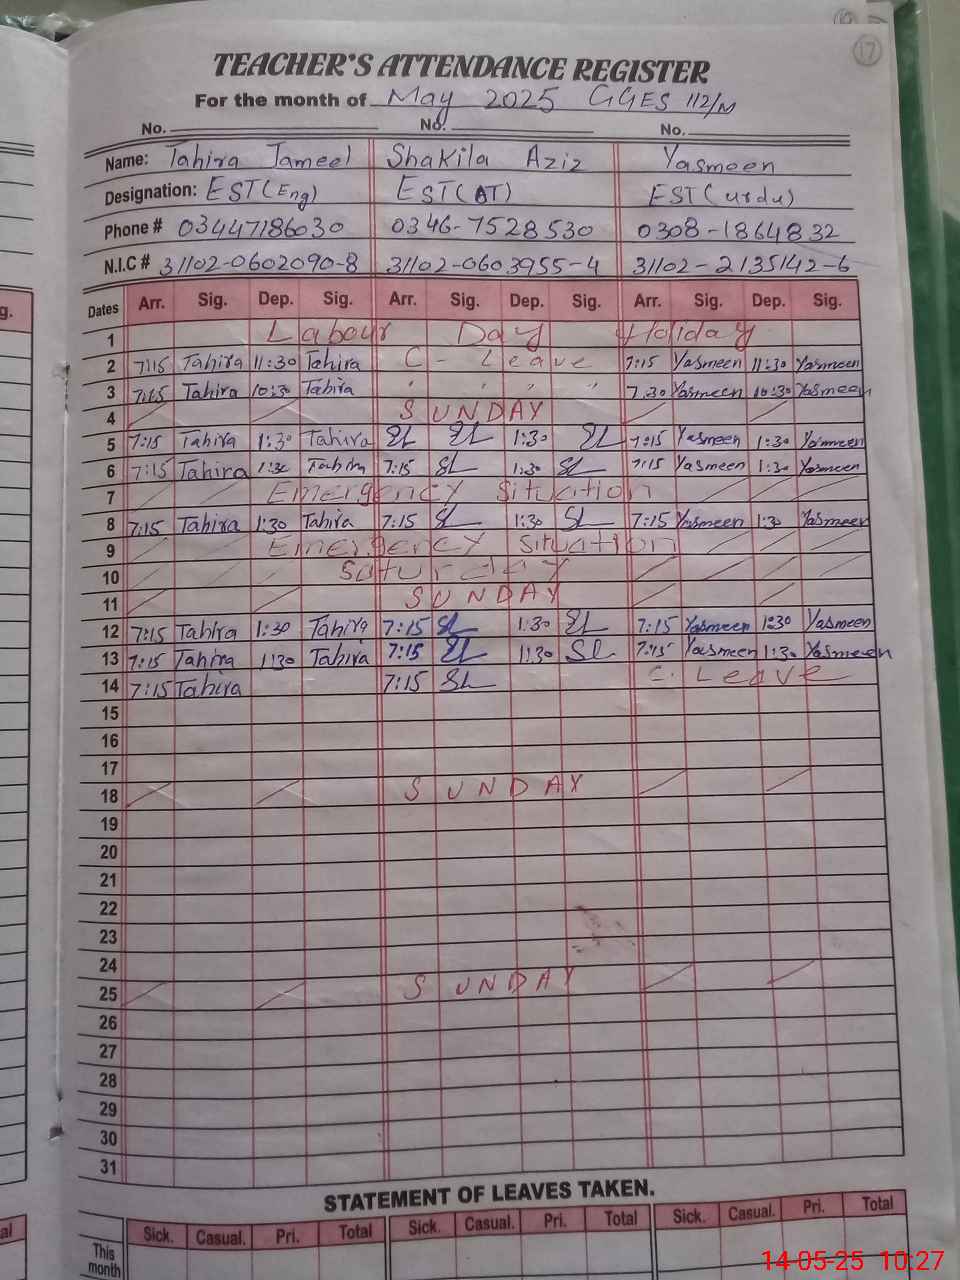 17
TEACHER'S ATTENDANCE REGISTER
For the month of May 2025 GGES 112/M
No. No. No.
Name: Tahira Jameel Shakila Aziz Yasmeen
Designation: EST(Eng) EST(AT) EST(urdu)
Phone # 03447186030 0346-7528530 0308-1864832
N.I.C # 31102-0602090-8 31102-0603955-4 31102-2135142-6
Dates Arr. Sig. Dep. Sig. Arr. Sig. Dep. Sig. Arr. Sig. Dep. Sig.
1 Labour Day Holiday
2 7:15 Tahira 11:30 Tahira C - Leave 7:15 Yasmeen 11:30 Yasmeen
3 7:15 Tahira 10:30 Tahira " " " " 7:30 Yasmeen 10:30 Yasmeen
4 SUNDAY
5 7:15 Tahira 1:30 Tahira 1:30 7:15 Yasmeen 1:30 Yasmeen
6 7:15 Tahira 1:30 Tahira 7:15 SL 1:30 SL 7:15 Yasmeen 1:30 Yasmeen
7 Emergency Situation
8 7:15 Tahira 1:30 Tahira 7:15 SL 1:30 SL 7:15 Yasmeen 1:30 Yasmeen
9 Emergency Situation
10 Saturday
11 SUNDAY
12 7:15 Tahira 1:30 Tahira 7:15 SL 1:30 SL 7:15 Yasmeen 1:30 Yasmeen
13 7:15 Tahira 1:30 Tahira 7:15 SL 1:30 SL 7:15 Yasmeen 1:30 Yasmeen
14 7:15 Tahira 7:15 SL C. Leave
15
16
17
18 SUNDAY
19
20
21
22
23
24
25 SUNDAY
26
27
28
29
30
31
STATEMENT OF LEAVES TAKEN.
Sick. Casual. Pri. Total Sick. Casual. Pri. Total Sick. Casual. Pri. Total
This month
14-05-25 10:27